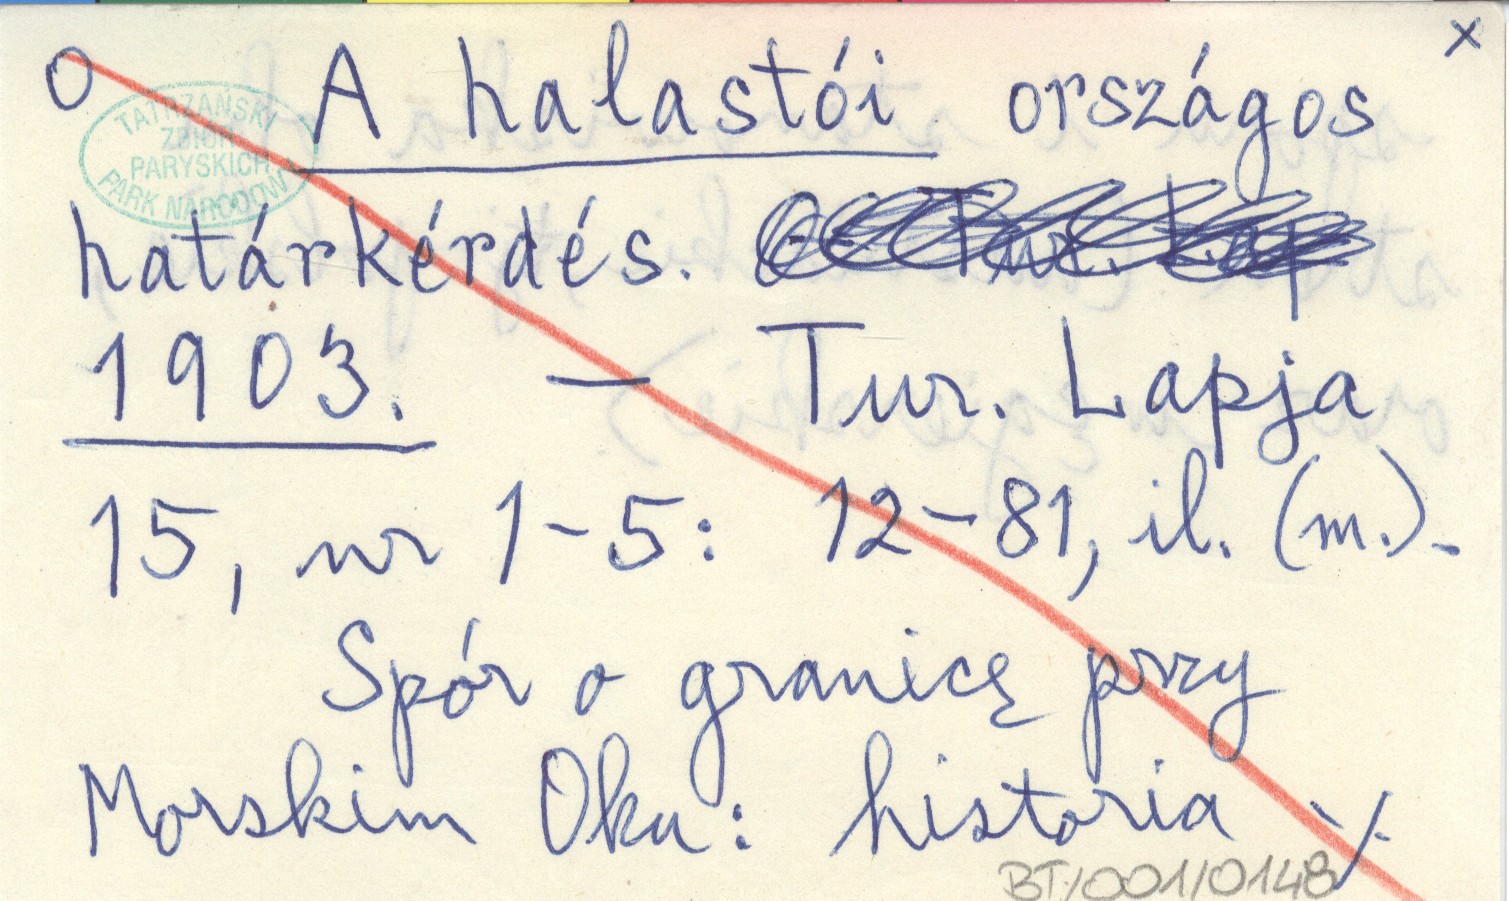 O A halastói országos x
TATRZAŃSKI
ZBIÓR
PARYSKICH
PARK NARODOWY
határkérdés. Tur. Lap
1903. — Tur. Lapja
15, nr 1-5: 12-81, il. (m.).
Spór o granicę przy
Morskim Oku: historia ./.
BT/001/0148